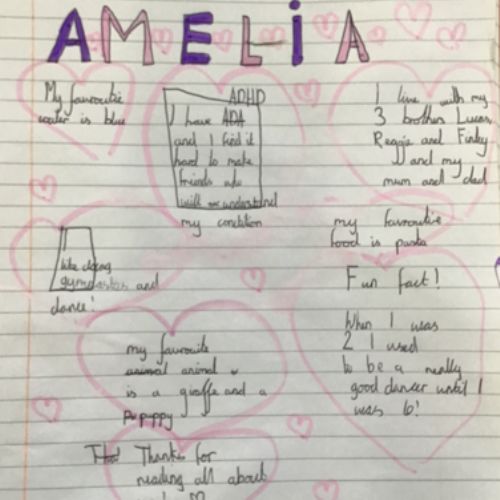 AMELIA
My favroutie
coulor is blue
ADHD
I have ADA
and I find it
hard to make
friends who
will understand
my condition
I live with my
3 brothers Lucas,
Reggie and Finley
and my
mum and dad
I
like doing
gymnastics and
dance!
my favroutie
food is pasta
Fun fact!
When I was
2 I used
to be a really
good dancer until I
was 6!
my favourite
animal animal
is a giraffe and a
puppy
Thanks for
reading all about